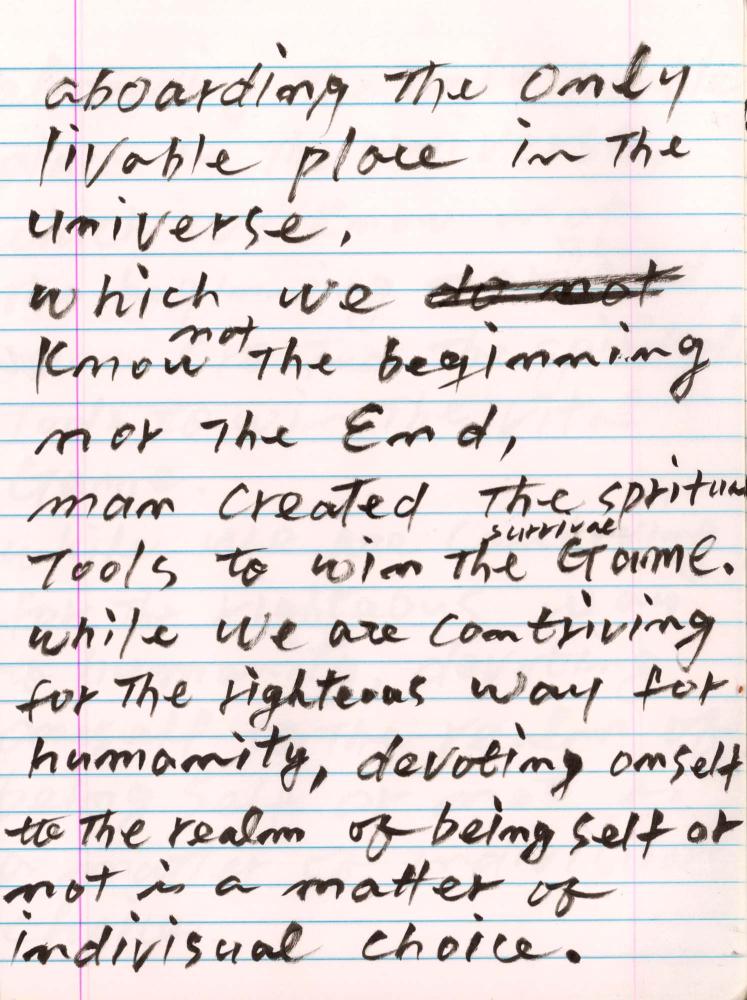 aboarding the only
livable place in the
universe,
which we do not
know not the beginning
nor the End,
man created the spritual
Tools to win the survival Game.
while we are contriving
for the righteous way for
humanity, devoting onself
to the realm of being self or
not is a matter of
indivisual choice.